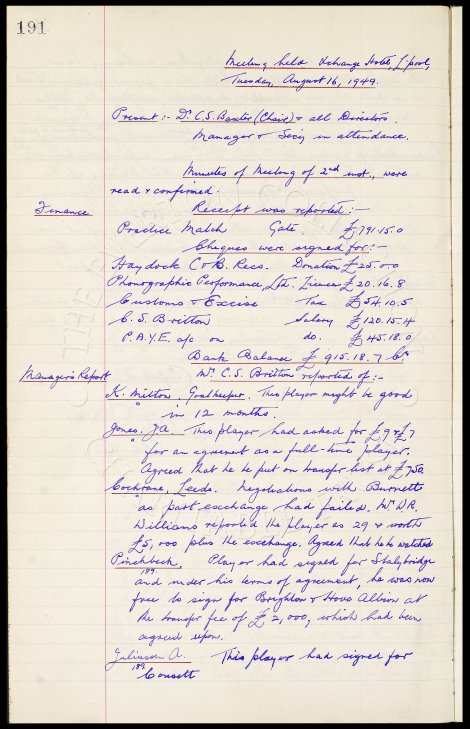 191
Meeting held Exchange Hotel, L'pool,
Tuesday, August 16, 1949.
Present :- Dr. C.S. Baxter (Chair) & all Directors.
Manager & Secy in attendance.
Minutes of Meeting of 2nd inst., were
read & confirmed.
Finance
Receipt was reported :-
Practice Match Gate £791.15.0
Cheques were signed for :-
Haydock C & B. Recs. Donation £25.0.0
Phonographic Performance, Ltd. Licence £20.16.8
Customs & Excise Tax £54.10.5
C.S. Britton Salary £120.15.4
P.A.Y.E. a/c on do. £45.18.0
Bank Balance £915.18.7 Cr.
Manager's Report
Mr. C.S. Britton reported of :-
K. Milton, Goalkeeper. This player might be good
in 12 months.
Jones. J.A. This player had asked for £9 & £7
for an agreement as a full-time player.
Agreed that he be put on transfer list at £750.
Cochrane, Leeds. Negotiations with Burnett
as part-exchange had failed. Mr. D.R.
Williams reported the player as 29 & worth
£5,000 plus the exchange. Agreed that he be watched
Pinchbeck. Player had signed for Stalybridge
189.
and under his terms of agreement, he was now
free to sign for Brighton & Hove Albion at
the transfer fee of £2,000, which had been
agreed upon.
Juliussen A. This player had signed for
189.
Consett